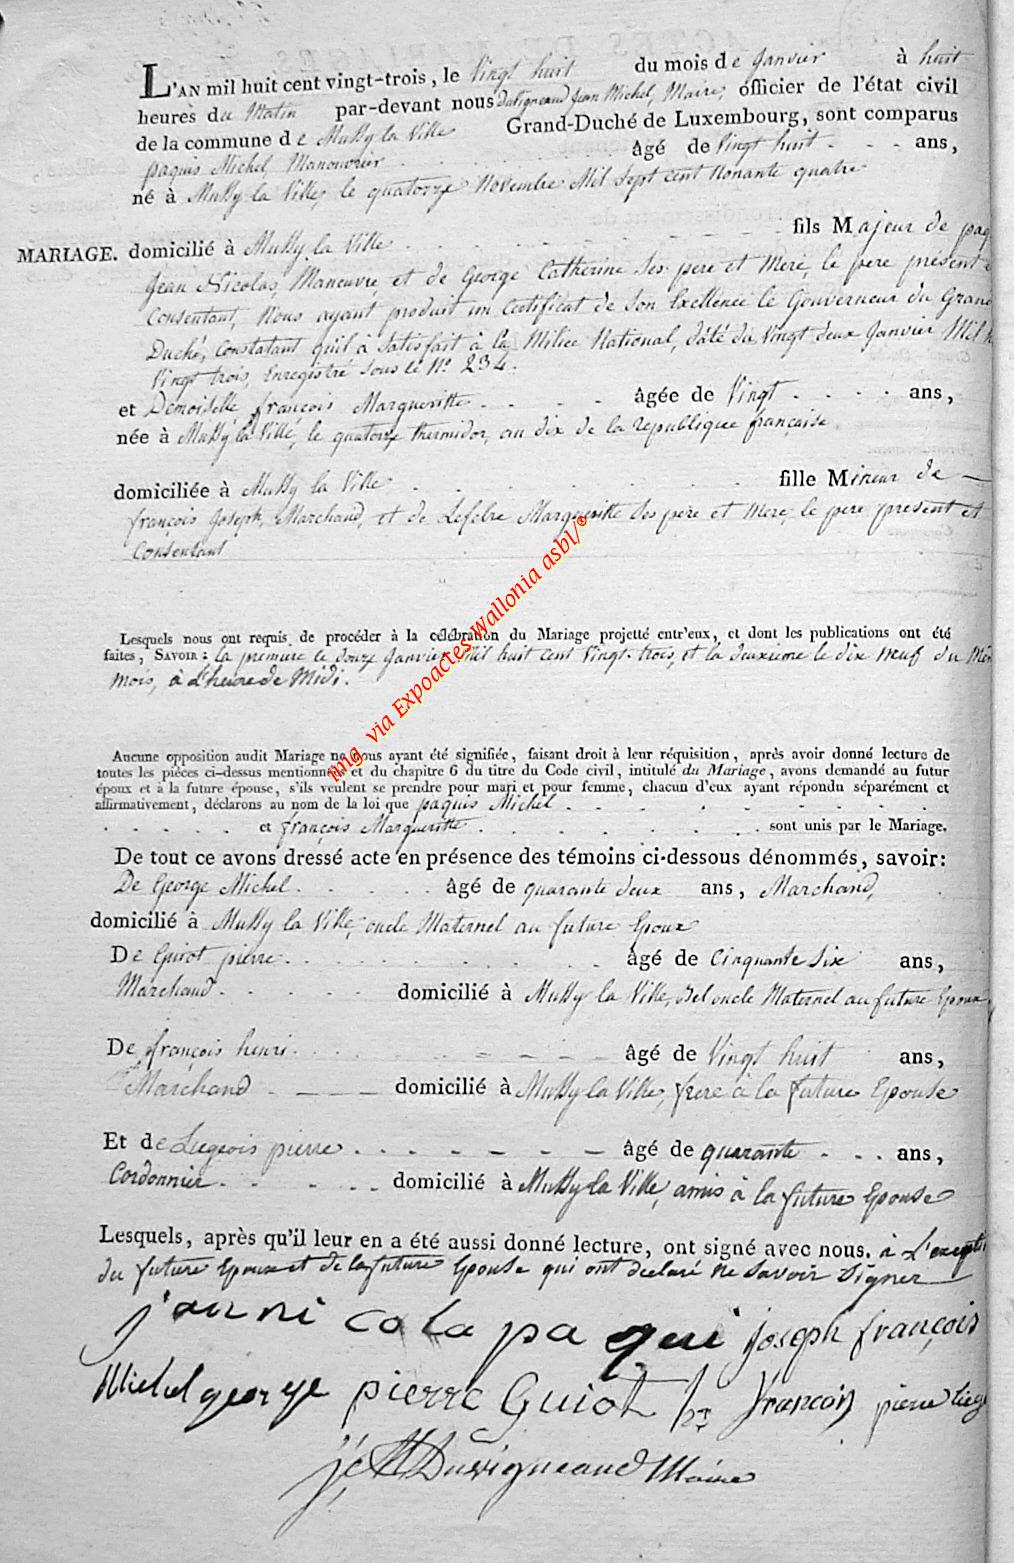 L'AN mil huit cent vingt-trois, le Vingt huit du mois de Janvier à huit
heures du Matin par-devant nous Duvigneaud Jean Michel, Maire, officier de l'état civil
de la commune de Mussy la Ville Grand-Duché de Luxembourg, sont comparus
paquis Michel, Manouvrier âgé de Vingt huit ans,
né à Mussy la Ville, le quatorze Novembre Mil Sept cent Nonante quatre
MARIAGE. domicilié à Mussy la Ville fils Majeur de paq
Jean Nicolas, Maneuvre et de George Catherine Ses pere et Mere, le pere présent
Consentant, Nous ayant produit un Certificat de Son Exellence le Gouverneur du Grand
Duché, Constatant qu'il à Satisfait à la Milice National, dâté du Vingt deux Janvier Mil h
Vingt trois, Enregistré Sous le N° 234.
et Demoiselle françois Margueritte âgée de Vingt ans,
née à Mussy la Ville, le quatorze thermidor, an dix de la republique française
domiciliée à Mussy la Ville fille Mineur de
françois Joseph, Marchand, et de Lefebre Margueritte Ses pere et Mere, le pere present et
Consentant
Lesquels nous ont requis de procéder à la célébration du Mariage projetté entr'eux, et dont les publications ont été
faites, SAVOIR : la premiere le douze Janvier Mil huit cent Vingt-trois, et la deuxieme le dix neuf du Mê
mois, à L'heure de Midi.
Aucune opposition audit Mariage ne nous ayant été signifiée, faisant droit à leur réquisition, après avoir donné lecture de
toutes les pièces ci-dessus mentionnées et du chapitre 6 du titre du Code civil, intitulé du Mariage, avons demandé au futur
époux et à la future épouse, s'ils veulent se prendre pour mari et pour femme, chacun d'eux ayant répondu séparément et
affirmativement, déclarons au nom de la loi que paquis Michel
et françois Margueritte sont unis par le Mariage.
De tout ce avons dressé acte en présence des témoins ci-dessous dénommés, savoir:
De George Michel âgé de quarante deux ans, Marchand,
domicilié à Mussy la Ville, oncle Maternel au future Epoux
De Guiot pierre âgé de Cinquante Six ans,
Marchand domicilié à Mussy la Ville, Bel oncle Maternel au future Epoux,
De françois henri âgé de Vingt huit ans,
Marchand domicilié à Mussy la Ville, frere à la future Epouse
Et de Liegeois pierre âgé de quarante ans,
Cordonnier domicilié à Mussy la Ville, amis à la future Epouse
Lesquels, après qu'il leur en a été aussi donné lecture, ont signé avec nous. à L'excepti
du future Epoux et de la future Epouse qui ont declaré ne Savoir Signer
jan ni cola pa qui joseph françois
Michel george pierre Guiot hri françois pierre lieg
Duvigneaud Maire
img via Expoactes wallonia asbl/®